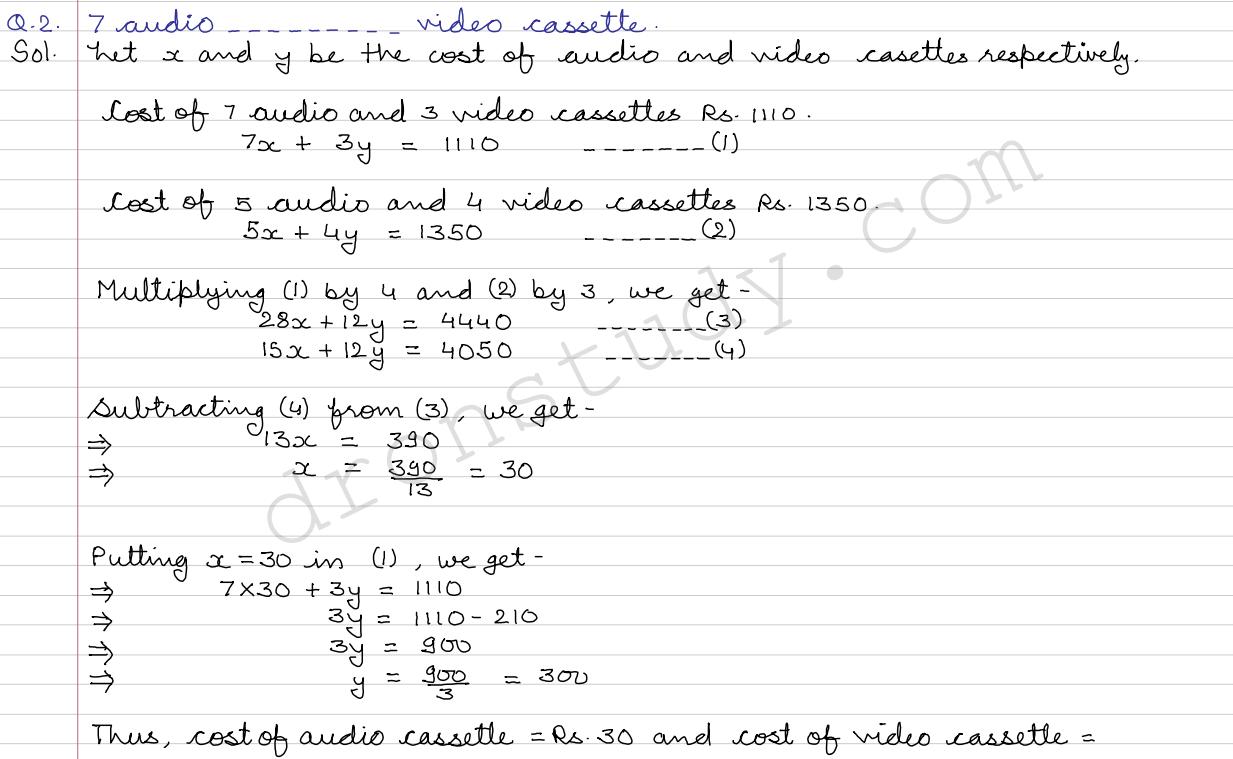 Q.2. 7 audio --------- video cassette.
Sol. Let x and y be the cost of audio and video casettes respectively.
Cost of 7 audio and 3 video cassettes Rs. 1110.
7x + 3y = 1110 -------(1)
Cost of 5 audio and 4 video cassettes Rs. 1350.
5x + 4y = 1350 -------(2)
Multiplying (1) by 4 and (2) by 3, we get -
28x + 12y = 4440 -------(3)
15x + 12y = 4050 -------(4)
Subtracting (4) from (3), we get -
⇒ 13x = 390
⇒ x = 390/13 = 30
Putting x = 30 in (1), we get -
⇒ 7×30 + 3y = 1110
⇒ 3y = 1110 - 210
⇒ 3y = 900
⇒ y = 900/3 = 300
Thus, cost of audio cassette = Rs. 30 and cost of video cassette =
dronstudy.com